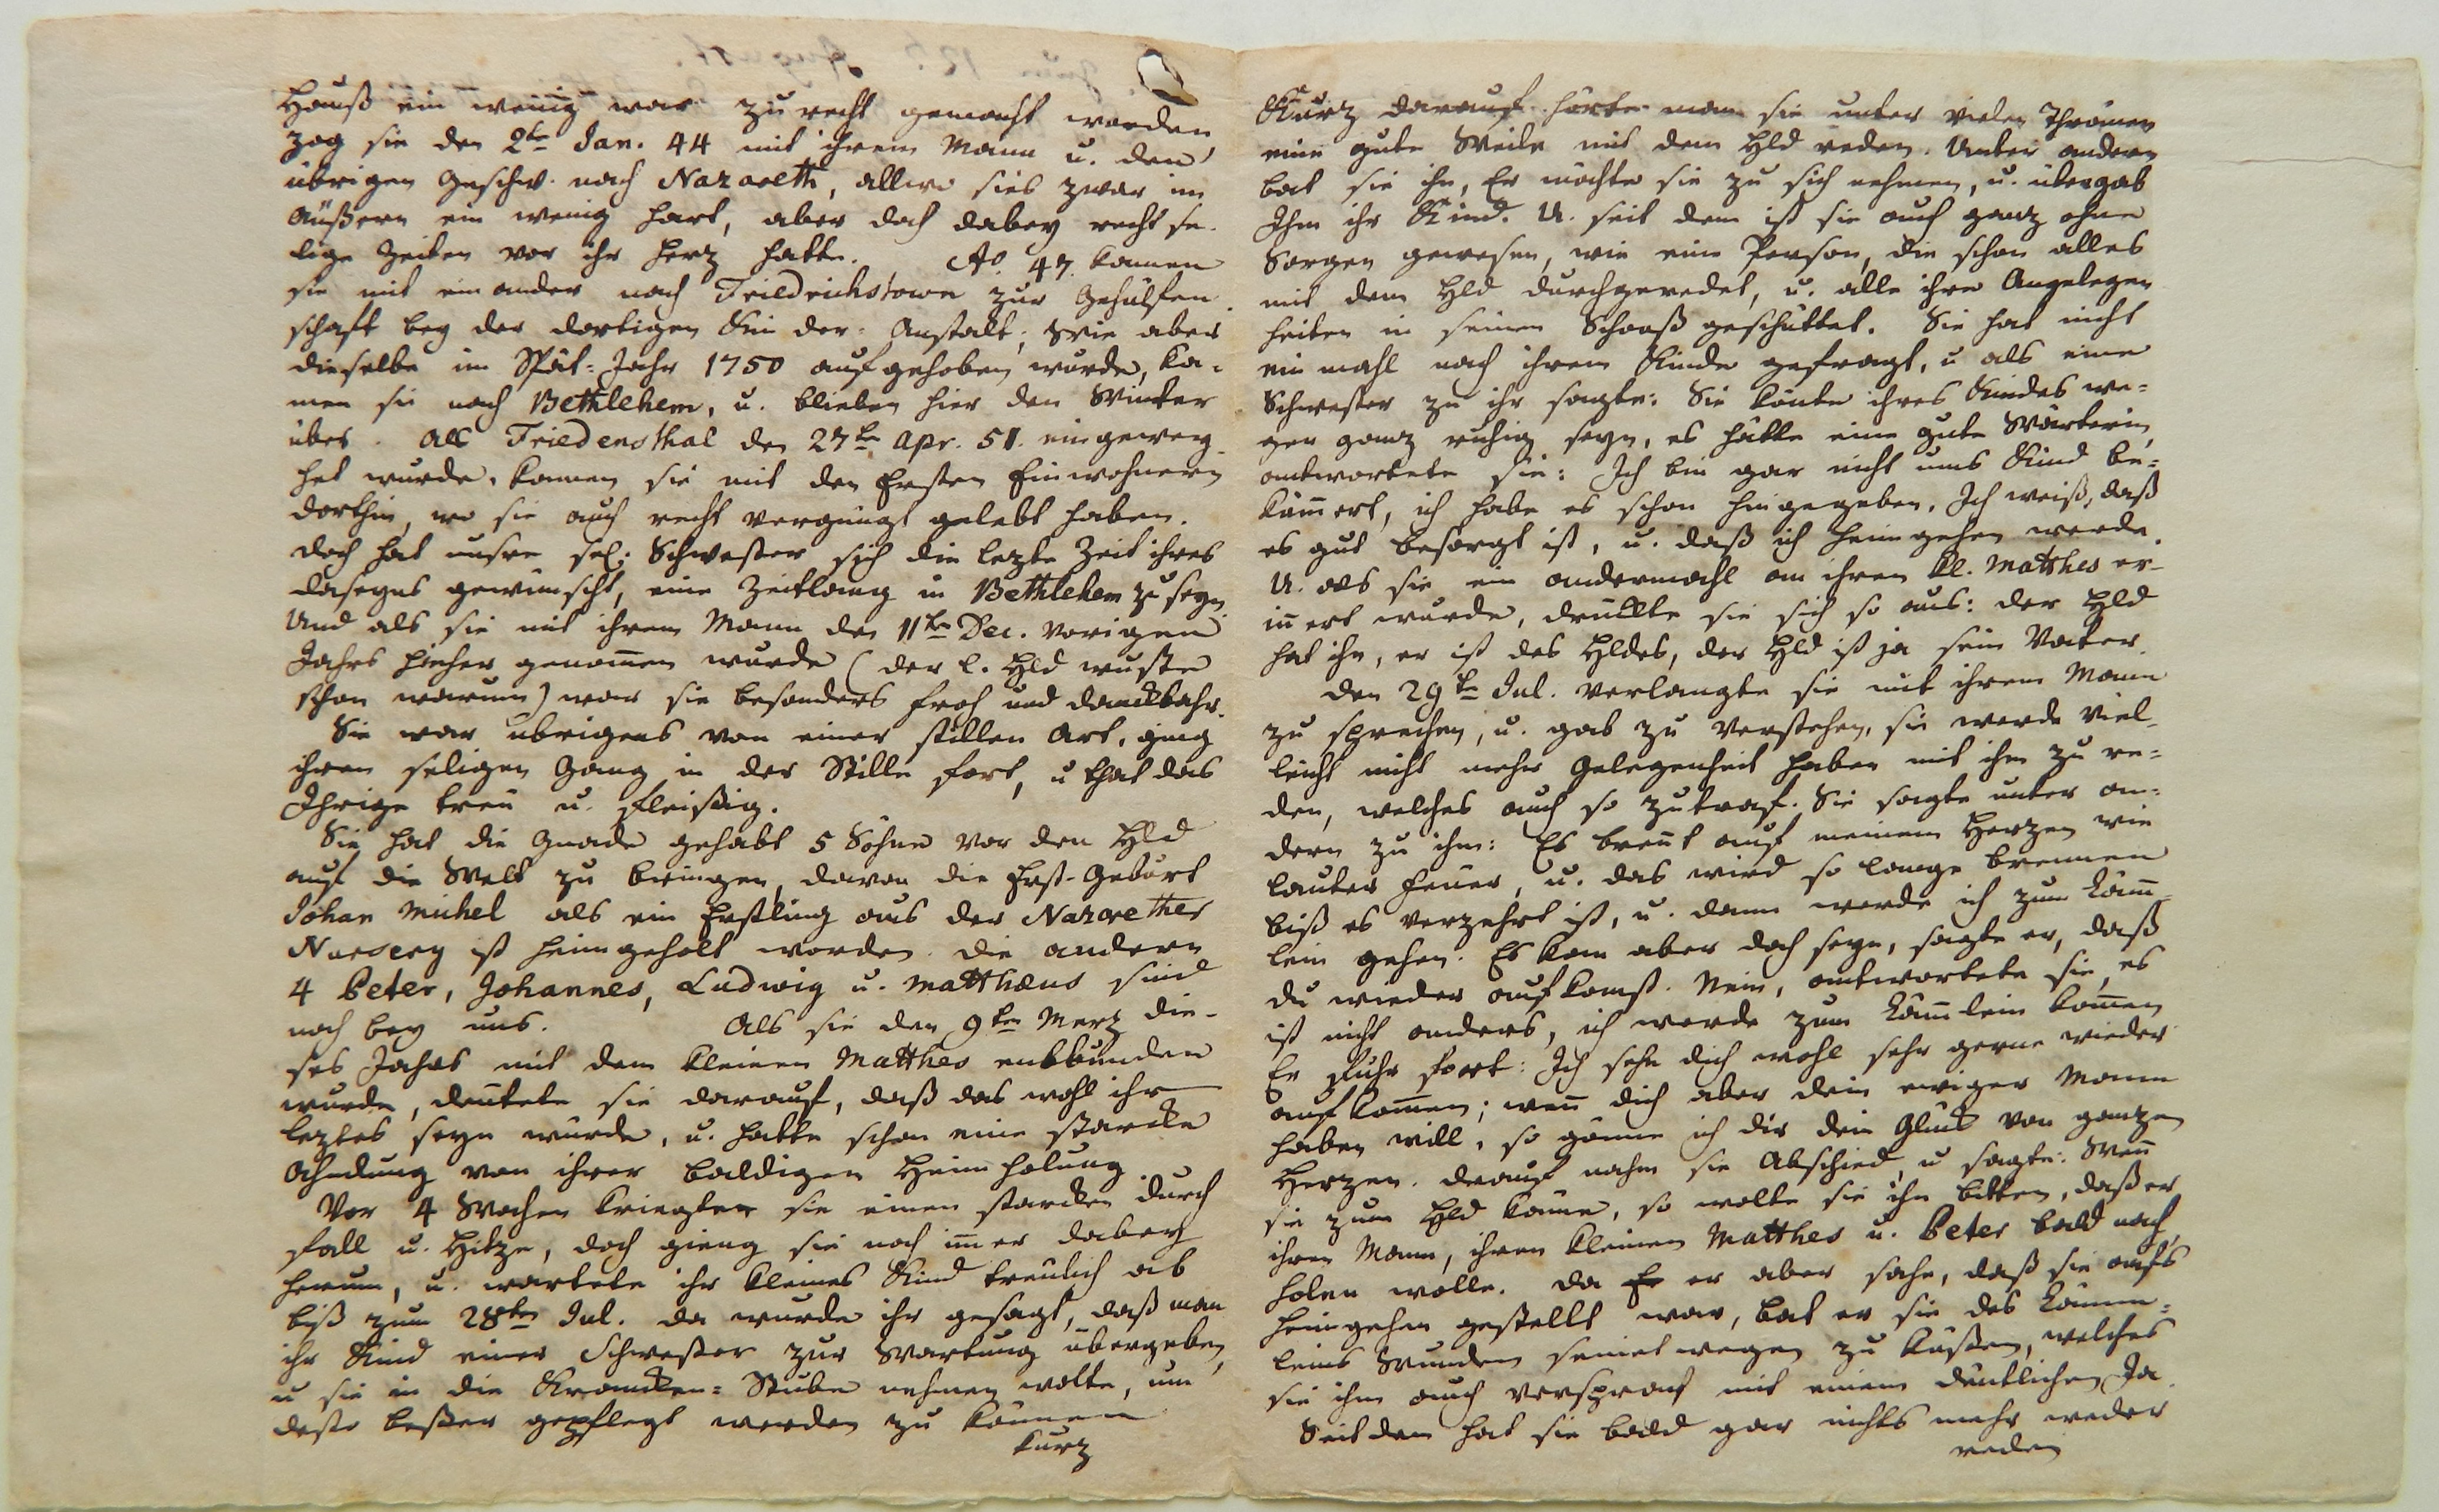 Hauß ein wenig war zu recht gemacht worden,
zog sie den 2ten Jan. 44 mit ihrem Mann u. den
übrigen Geschw. nach Nazareth, allwo sies zwar im
äußern ein wenig hart, aber doch dabey recht se-
lige Zeiten vor ihr Herz hatte. Ao. 47. kamen
sie mit einander nach Friedrichstown zur Gehülfen-
schaft bey der dortigen Kinder-Anstalt; Wie aber
dieselbe im Spät-Jahr 1750 aufgehoben wurde, ka-
men sie nach Bethlehem, u. blieben hier den Winter
über. Als Friedensthal den 27ten Apr. 51. eingewey-
het wurde, kamen sie mit den Ersten Einwohnern
dorthin, wo sie auch recht vergnügt gelebt haben.
doch hat unsre sel. Schwester sich die lezte Zeit ihres
daseyns gewünscht, eine Zeitlang in Bethlehem zu seyn.
Und als sie mit ihrem Mann den 11ten Dec. vorigen
Jahrs hieher genom̄en wurde (der l. Hld wuste
schon warum) war sie besonders froh und danckbahr.
Sie war übrigens von einer stillen Art, ging
ihren seligen Gang in der Stille fort, u that das
Ihrige treu u. fleißig.
Sie hat die Gnade gehabt 5 Söhne vor den Hld
auf die Welt zu bringen, davon die Erst-Geburt
Johan Michel als ein Erstling aus der Nazarether
Nursery ist heimgeholt worden. die andern
4 Peter, Johannes, Ludwig u. Matthæus sind
noch bey uns. Als sie den 9ten Merz die-
ses Jahrs mit dem kleinen Matthes entbunden
wurde, deutete sie darauf, daß das wohl ihr
leztes seyn würde, u. hatte schon eine starcke
Ahndung von ihrer baldigen Heimholung
Vor 4 Wochen kriegte sie einen starcken durch
fall u. Hitze, doch gieng sie noch im̄er dabey
herum, u. wartete ihr kleines Kind treulich ab
biß zum 28ten Jul. da wurde ihr gesagt, daß man
ihr Kind einer Schwester zur Wartung übergeben,
u sie in die Krancken-Stube nehmen wolte, um
desto beßer gepflegt werden zu können
kurz
Kurz darauf hörte man sie unter vielen Thränen
eine gute Weile mit dem Hld reden. Unter andern
bat sie ihn, Er möchte sie zu sich nehmen, u. übergab
Ihm ihr Kind. U. seit dem ist sie auch ganz ohne
Sorgen gewesen, wie eine Person, die schon alles
mit dem Hld durchgeredet, u. alle ihre Angelegen
heiten in seinen Schooß geschüttet. Sie hat nicht
ein mahl nach ihrem Kinde gefragt, u als eine
Schwester zu ihr sagte: Sie könte ihres Kindes we-
gen ganz ruhig seyn, es hätte eine gute Wärterin,
antwortete sie: Ich bin gar nicht ums Kind be-
küm̄ert, ich habe es schon hingegeben. Ich weiß, daß
es gut besorgt ist, u. daß ich heimgehen werde.
U. als sie ein andermahl an ihren kl. Matthes er-
in̄ert wurde, druckte sie sich so aus: der Hld
hat ihn, er ist des Hldes, der Hld ist ja sein Vater.
Den 29ten Jul. verlangte sie mit ihrem Mann
zu sprechen, u. gab zu verstehen, sie werde viel-
leicht nicht mehr Gelegenheit haben mit ihm zu re-
den, welches auch so zutraf. Sie sagte unter an-
dern zu ihm: Es bren̄t auf meinem Herzen wie
lauter Feuer, u. das wird so lange brennen
biß es verzehrt ist, u. dann werde ich zum Läm̄-
lein gehen. Es kan aber doch seyn, sagte er, daß
du wieder aufkomst. Nein, antwortete sie, es
ist nicht anders, ich werde zum Läm̄lein kom̄en
Er fuhr fort: Ich sehe dich wohl sehr gerne wieder
aufkom̄en; wen̄ dich aber dein ewiger Mann
haben will, so gönne ich dir dein Glück von ganzen
Herzen. darauf nahm sie Abschied, u sagte: Wen̄
sie zum Hld käme, so wolte sie ihn bitten, daß er
ihren Mann, ihren kleinen Matthes u. Peter bald nach
holen wolle. Da er aber sahe, daß sie aufs
heimgehen gestellt war, bat er sie des Lämm-
leins Wunden seinet wegen zu küßen, welches
sie ihm auch versprach mit einem deutlichen Ja.
Seitdem hat sie bald gar nichts mehr weder
reden